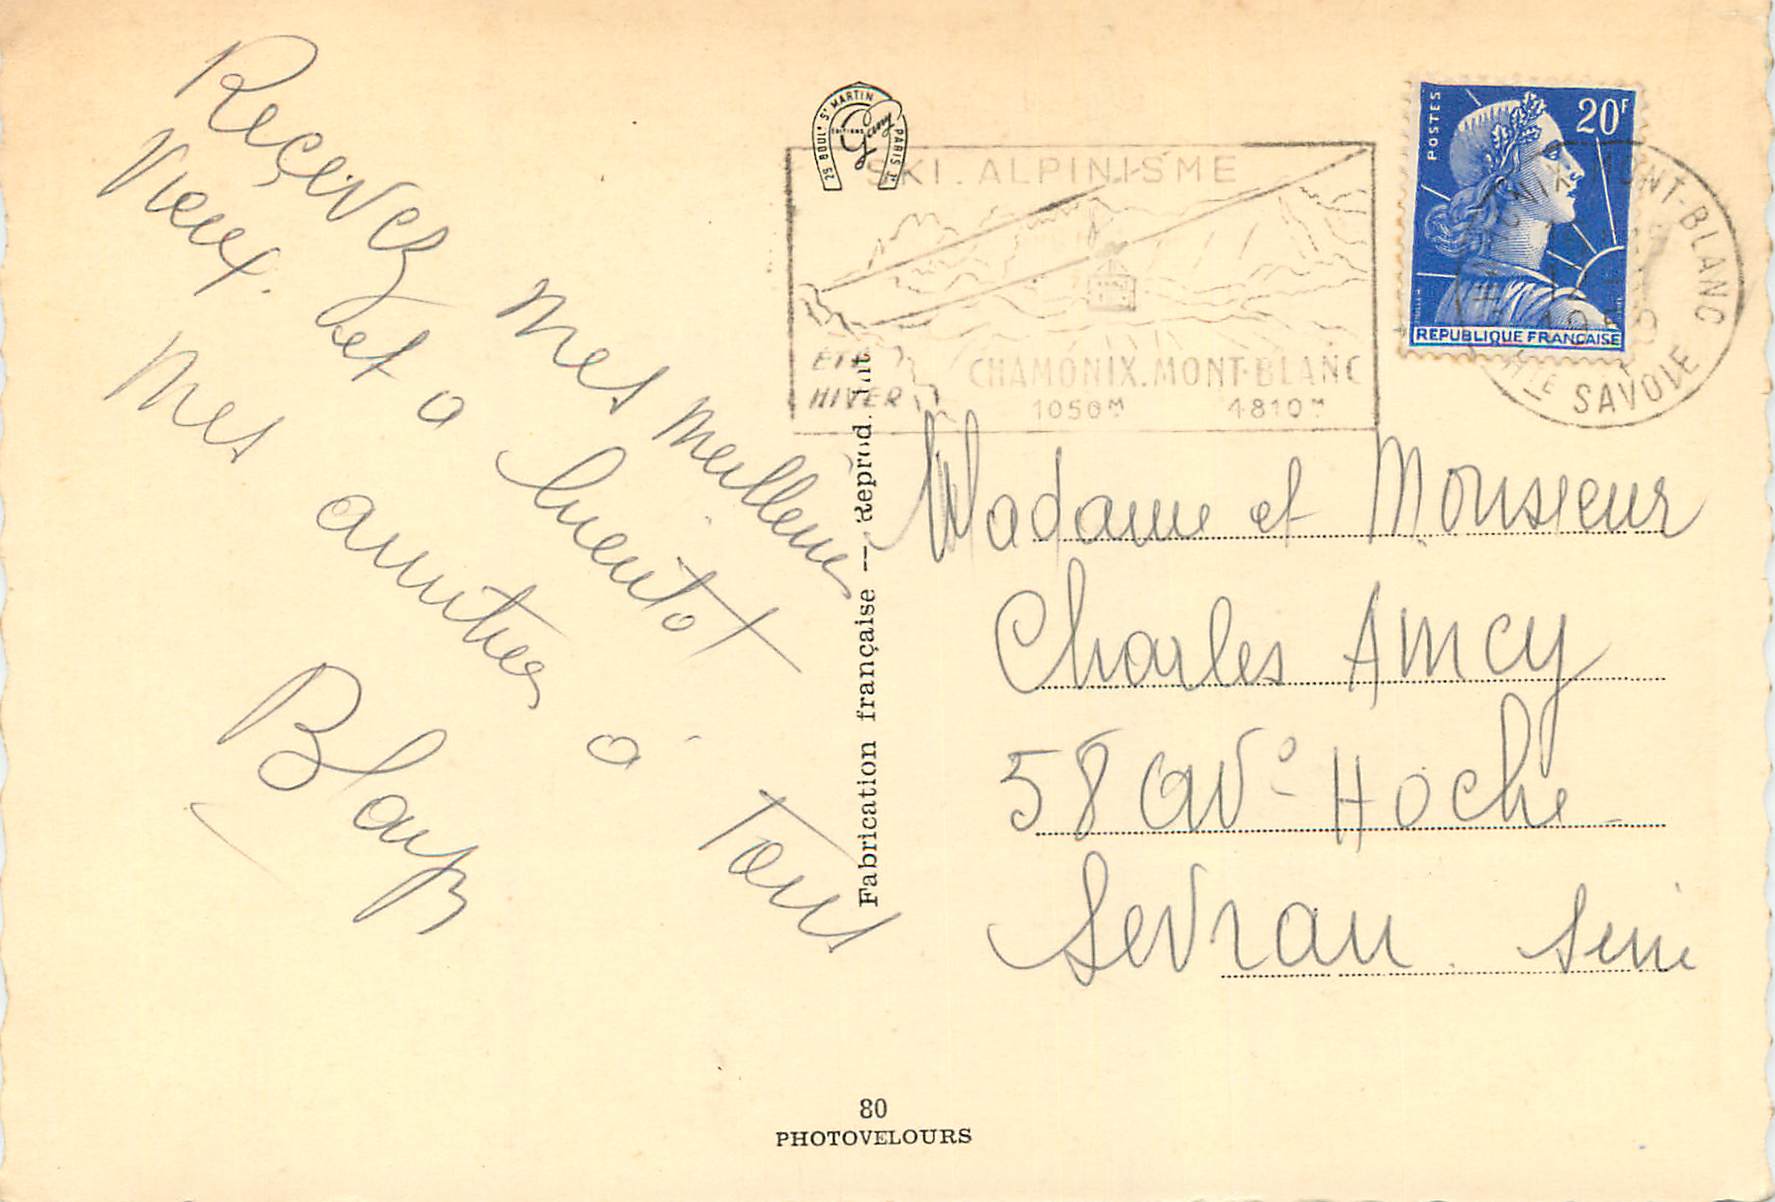 Reçevez mes meilleurs
Vœux. et a bientôt
Mes amitiés à Tous
29 BOULD ST MARTIN PARIS 3e
EDITIONS
Guy
Fabrication française — Reprod. Int
SKI. ALPINISME
ÉTÉ
HIVER
CHAMONIX. MONT-BLANC
1050M 4810M
POSTES
20F
REPUBLIQUE FRANÇAISE
MONT-BLANC
HTE SAVOIE
Madame et Monsieur
Charles Amcy
58 Ave Hoche
Sevran. Seine
80
PHOTOVELOURS